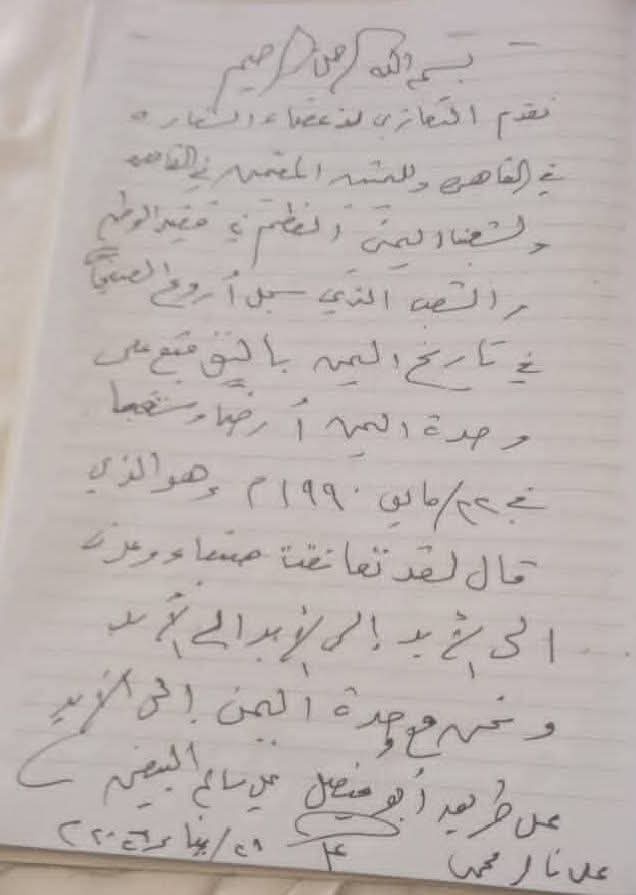 بسم الله الرحمن الرحيم
نقدم التعازي لأعضاء السفارة
في القاهرة ولليمنيين المقيمين في القاهرة
ولشعبنا اليمني العظيم في فقيد الوطن
والشعب الذي سجل أروع الصفحات
في تاريخ اليمن بالتوقيع على
وحدة اليمن أرضاً وشعباً
في ٢٢/مايو ١٩٩٠م وهو الذي
قال لقد تعانقت صنعاء وعدن
الى الأبد إلى الأبد الى الأبد
ونحن مع وحدة اليمن إلى الأبد
على طريق أبو فيصل علي سالم البيض
علي ناصر محمد
٢٩/يناير ٢٠٢٦